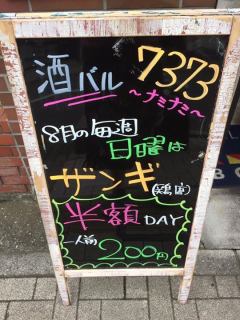 酒バル 7373
～ナミナミ～
8月の毎週
日曜は
ザンギ
半額DAY
一人前 200円